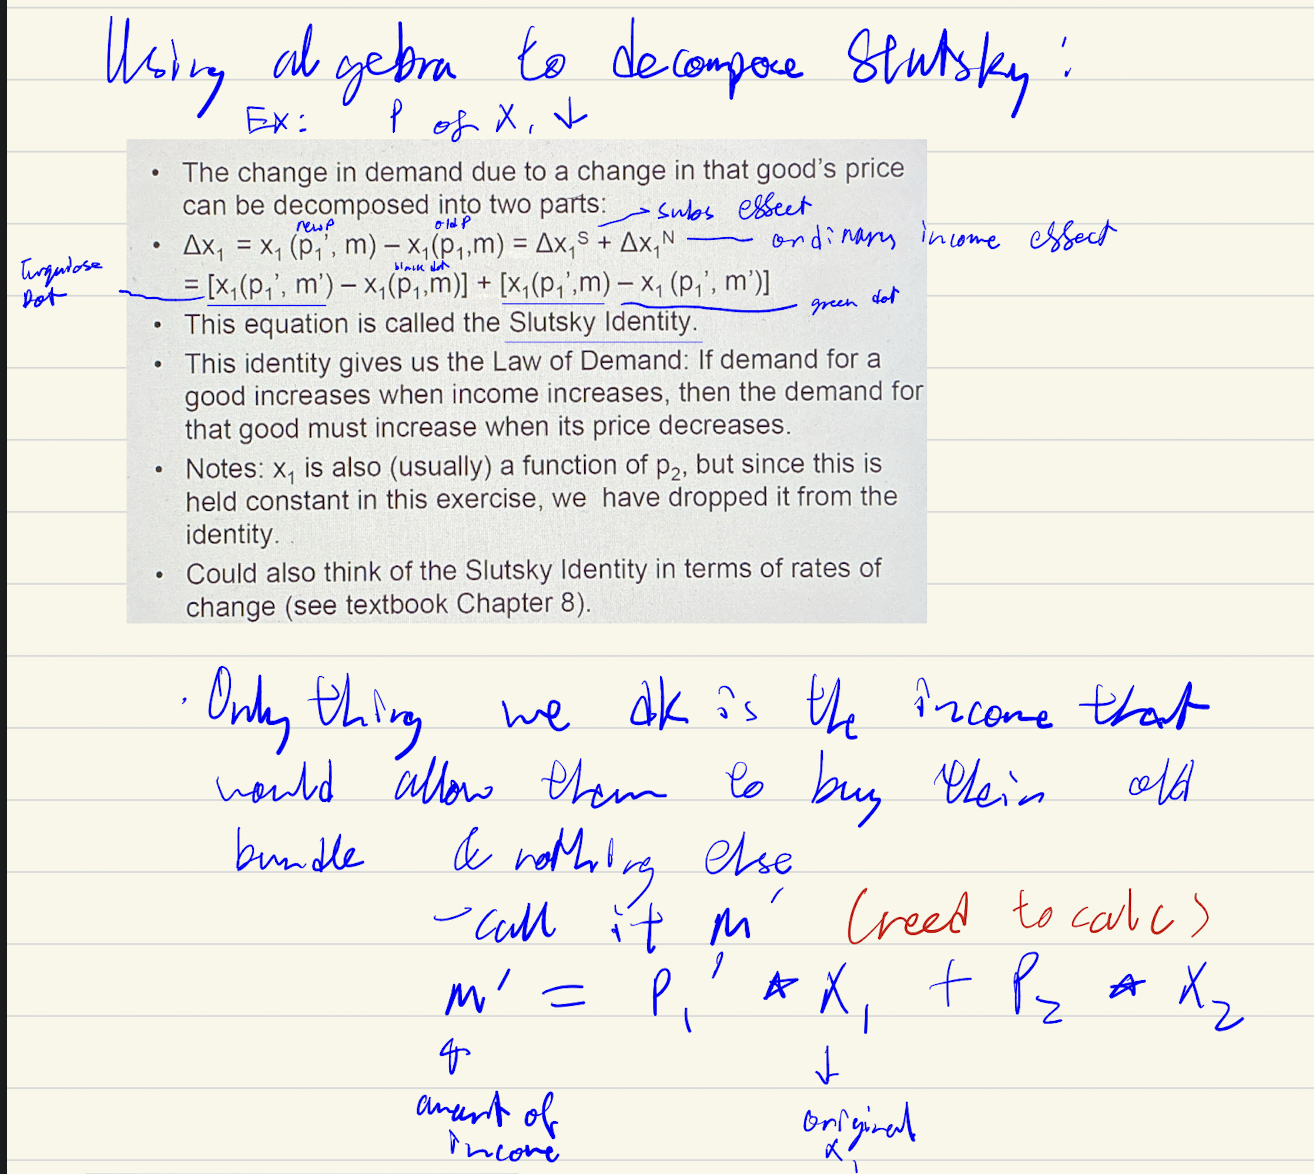 Using algebra to decompose Slutsky:
Ex: P of X₁ ↓
• The change in demand due to a change in that good's price
can be decomposed into two parts:
→ subs effect
new P
old P
• Δx₁ = x₁ (p₁', m) – x₁(p₁,m) = Δx₁ˢ + Δx₁ᴺ
ordinary income effect
Turquoise
Dot
black dot
= [x₁(p₁', m') – x₁(p₁,m)] + [x₁(p₁',m) – x₁ (p₁', m')]
green dot
• This equation is called the Slutsky Identity.
• This identity gives us the Law of Demand: If demand for a
good increases when income increases, then the demand for
that good must increase when its price decreases.
• Notes: x₁ is also (usually) a function of p₂, but since this is
held constant in this exercise, we have dropped it from the
identity.
• Could also think of the Slutsky Identity in terms of rates of
change (see textbook Chapter 8).
· Only thing we dk is the income that
would allow them to buy their old
bundle & nothing else
- call it m' (need to calc)
m' = P₁' * X₁ + P₂ * X₂
↑ ↓
amount of
income
original
x₁